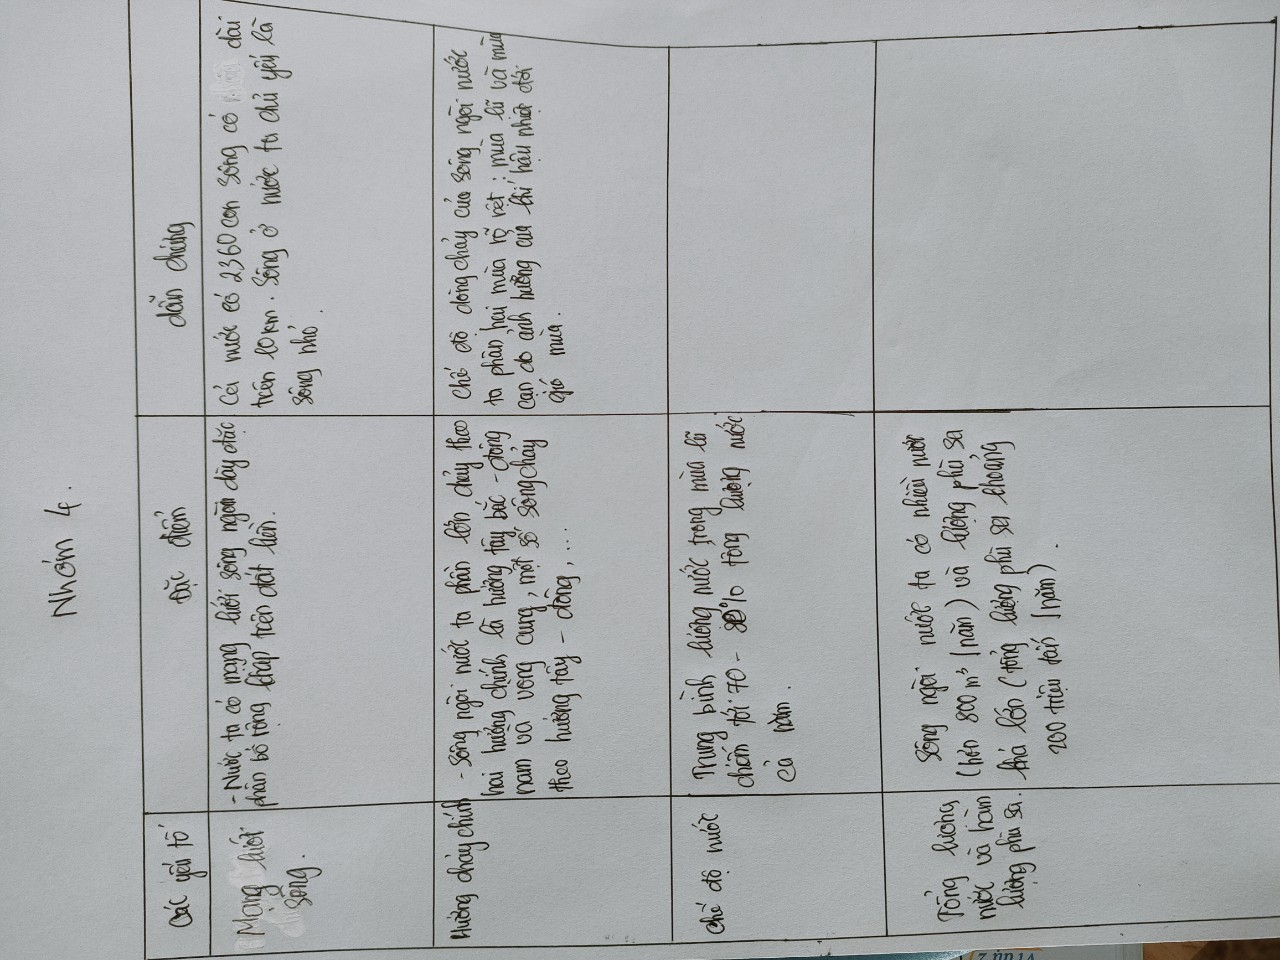 Nhóm 4.
Các yếu tố
Đặc điểm
dẫn chứng
Mạng lưới
sông.
- Nước ta có mạng lưới sông ngòi dày đặc
phân bố rộng khắp trên đất liền.
Cả nước có 2360 con sông có dài
trên 10km. Sông ở nước ta chủ yếu là
sông nhỏ.
Hướng chảy chính
- Sông ngòi nước ta phần lớn chảy theo
hai hướng chính là hướng tây bắc - đông
nam và vòng cung, một số sông chảy
theo hướng tây - đông, ...
Chế độ dòng chảy của sông ngòi nước
ta phân hai mùa rõ rệt : mùa lũ và mùa
cạn do ảnh hưởng của khí hậu nhiệt đới
gió mùa.
Chế độ nước
Trung bình lượng nước trong mùa lũ
chiếm tới 70 - 80% tổng lượng nước
cả năm.
Tổng lượng
nước và hàm
lượng phù sa.
Sông ngòi nước ta có nhiều nước
(hơn 800 m³ /năm) và lượng phù sa
khá lớn (tổng lượng phù sa khoảng
200 triệu tấn /năm).